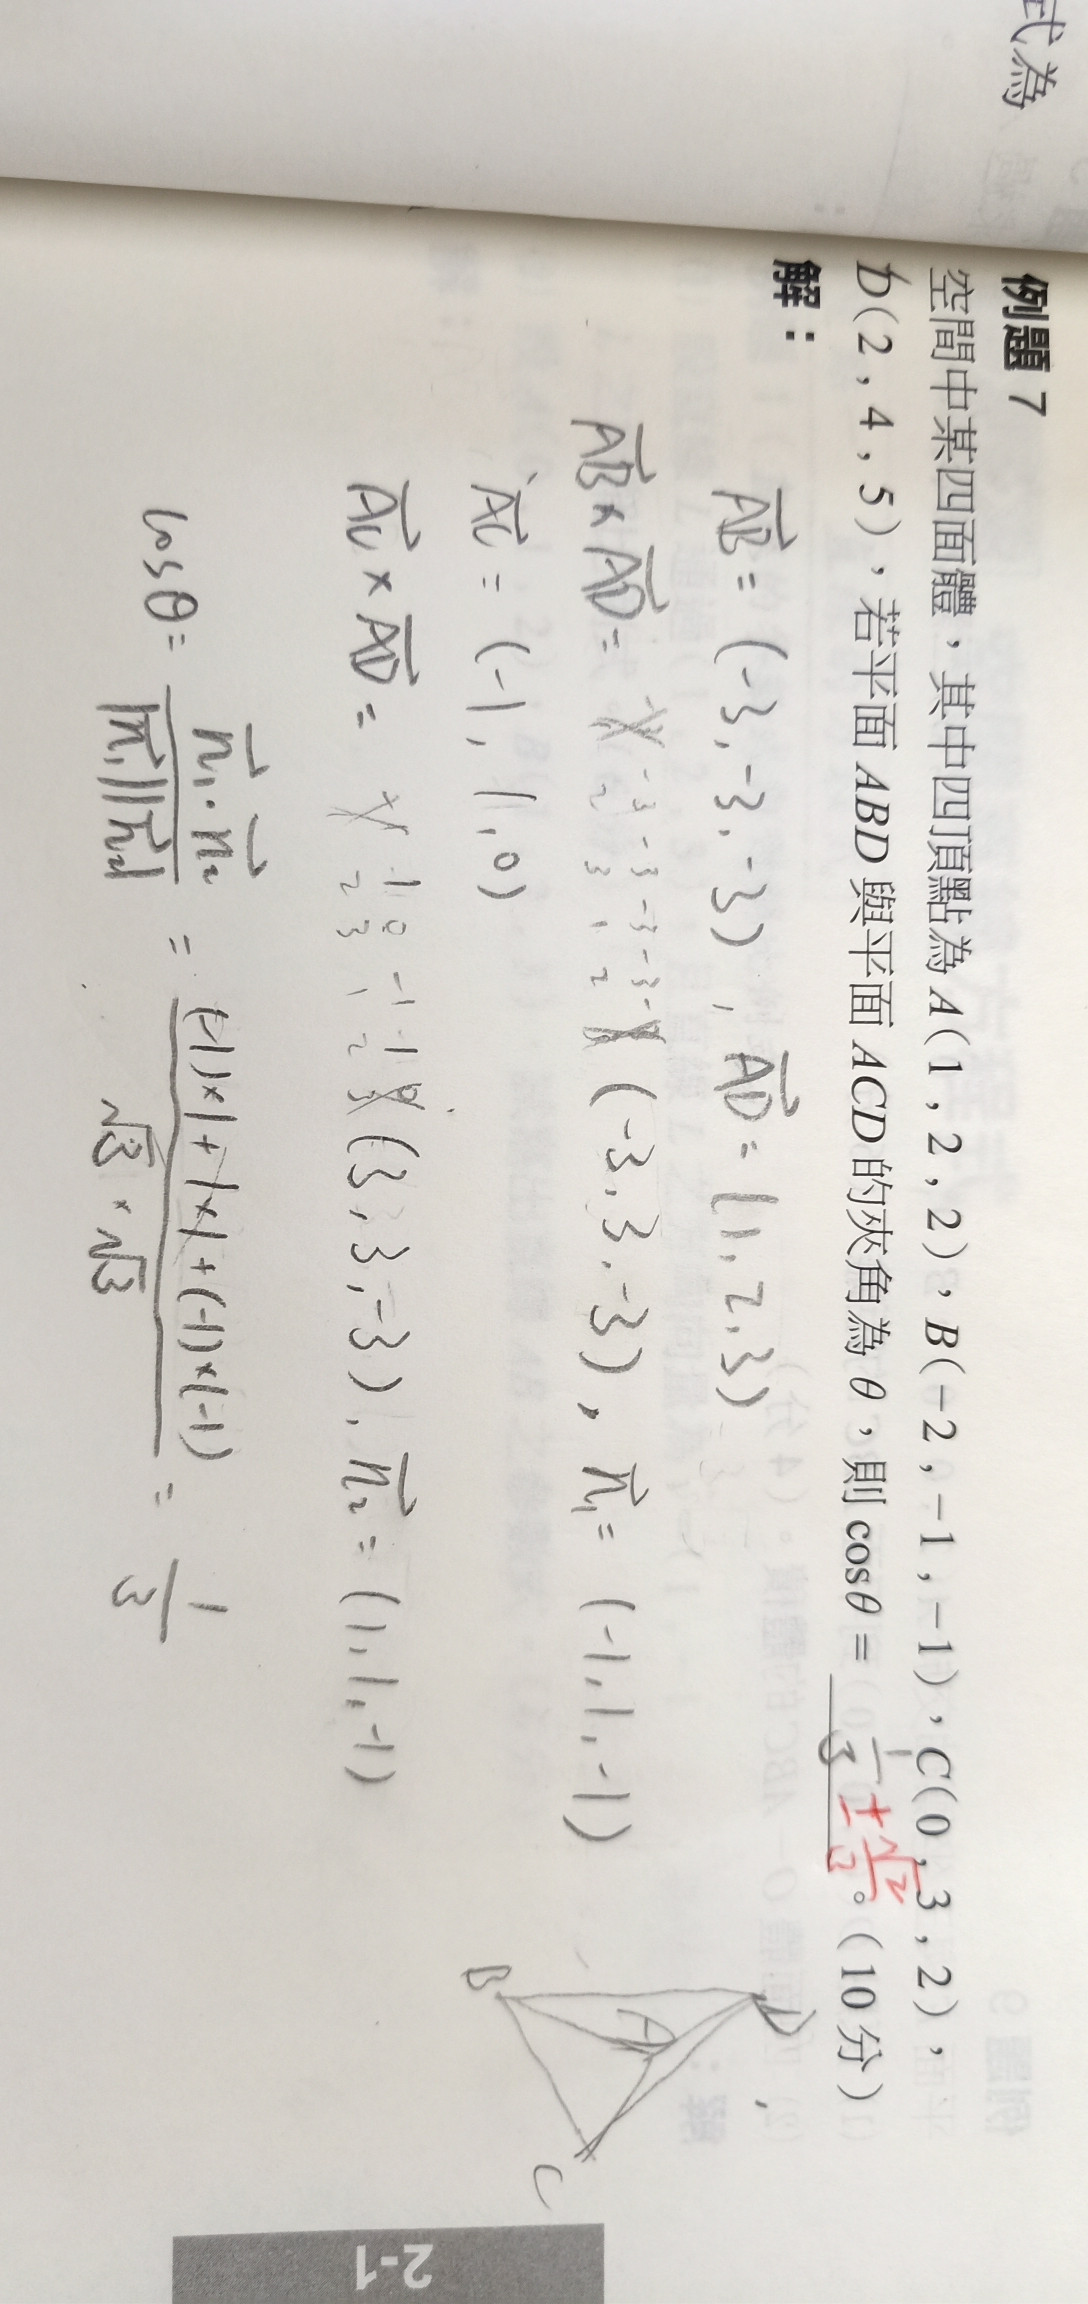 式為
例題 7
空間中某四面體，其中四頂點為 A(1,2,2)，B(−2,−1,−1)，C(0,3,2)，
D(2,4,5)，若平面 ABD 與平面 ACD 的夾角為 θ，則 cosθ = 1/3 ±√2/3 。(10 分)
解：
AB = (-3,-3,-3), AD = (1,2,3)
AB × AD = -3 -3 -3 -3
2 3 1 2
(-3,3,-3), n₁ = (-1,1,-1)
AC = (-1,1,0)
AC × AD = 1 0 -1 1
2 3 1 2
(3,3,-3), n₂ = (1,1,-1)
cosθ = n₁·n₂ / |n₁||n₂| = (-1)×1+1×1+(-1)×(-1) / √3·√3 = 1/3
D
A
B
C
2-1